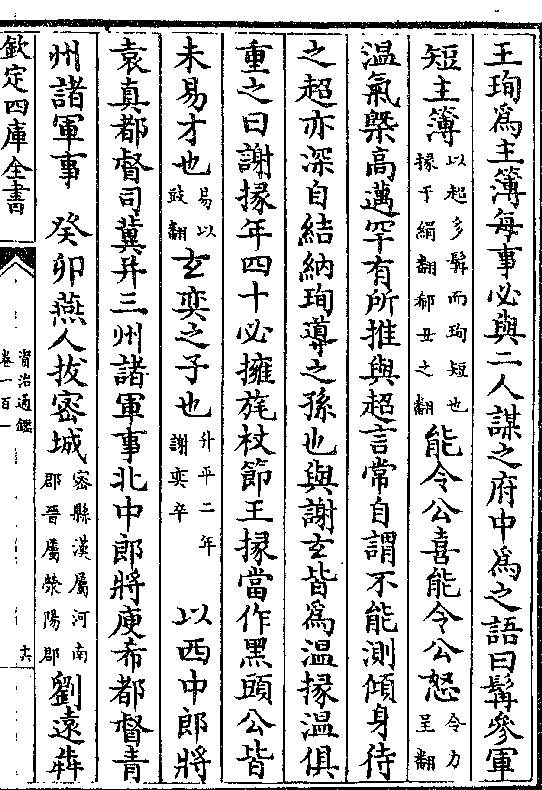 王珣爲主簿每事必與二人謀之府中爲之語曰髯參軍
短主簿以超多髯而珣短也掾于絹翻郗丑之翻能令公喜能令公怒令力呈翻
溫氣槩高邁罕有所推與超言常自謂不能測傾身待
之超亦深自結納珣導之孫也與謝玄皆爲溫掾溫俱
重之曰謝掾年四十必擁旄杖節王掾當作黑頭公皆
未易才也易以豉翻玄奕之子也升平二年謝奕卒以西中郎將
袁真都督司冀并三州諸軍事北中郎將庾希都督青
州諸軍事 癸卯燕人拔密城密縣漢屬河南郡晉屬滎陽郡劉遠犇
欽定四庫全書
資治通鑑
卷一百一
六